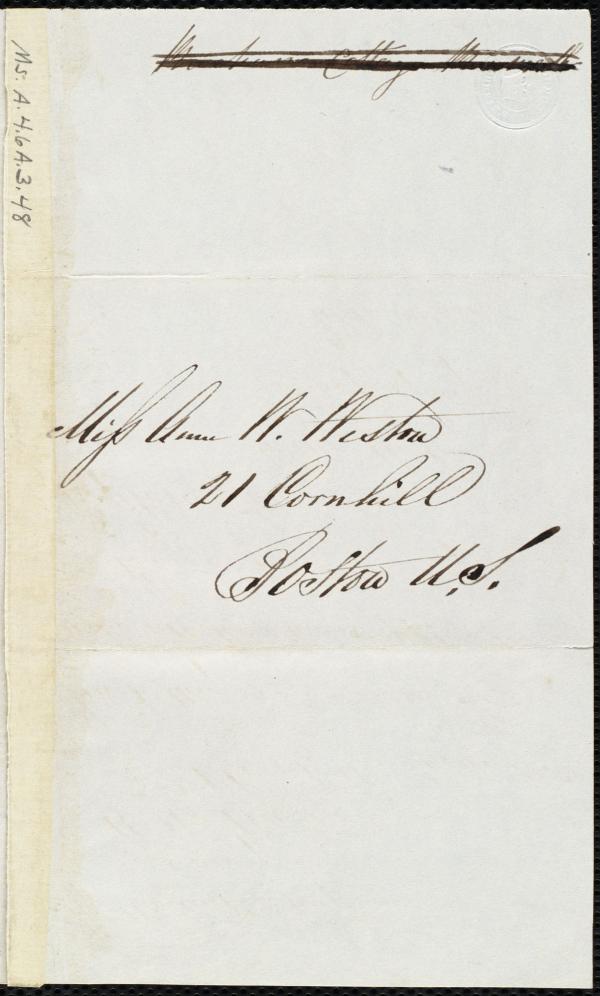 Cottage
Ms. A.4.6A.3.48
Miss Anne W. Weston
21 Cornhill
Boston U.S.